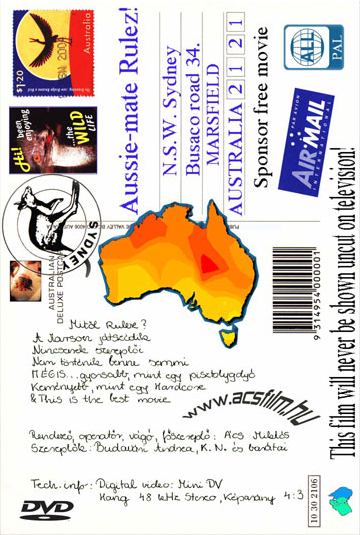 Australia
$1.20
2004
Hi!
been
enjoying
...the
WILD
LIFE
SYDNEY
AUSTRALIAN
DELUXE POSTCARD
Aussie-mate Rulez!
N.S.W. Sydney
Busaco road 34.
MARSFIELD
AUSTRALIA 2 1 2 1
Sponsor free movie
ALL
PAL
PAR AVION
AIR MAIL
INTERNATIONAL
9 314954 000001
This film will never be shown uncut on television!
Mitől Rulez?
A Narrson játszódik
Nincsenek szereplői
Nem történik benne semmi
MÉGIS...gyorsabb, mint egy pisztolygolyó
Keményebb, mint egy Hardcore
& This is the best movie
www.acsfilm.hu
Rendező, operatőr, vágó, főszereplő: Ács Miklós
Szereplők: Budavári Andrea, K. N. és barátai
Tech. info: Digital video: Mini DV
Hang 48 kHz Stereo, Képarány 4:3
DVD
10.30 2106